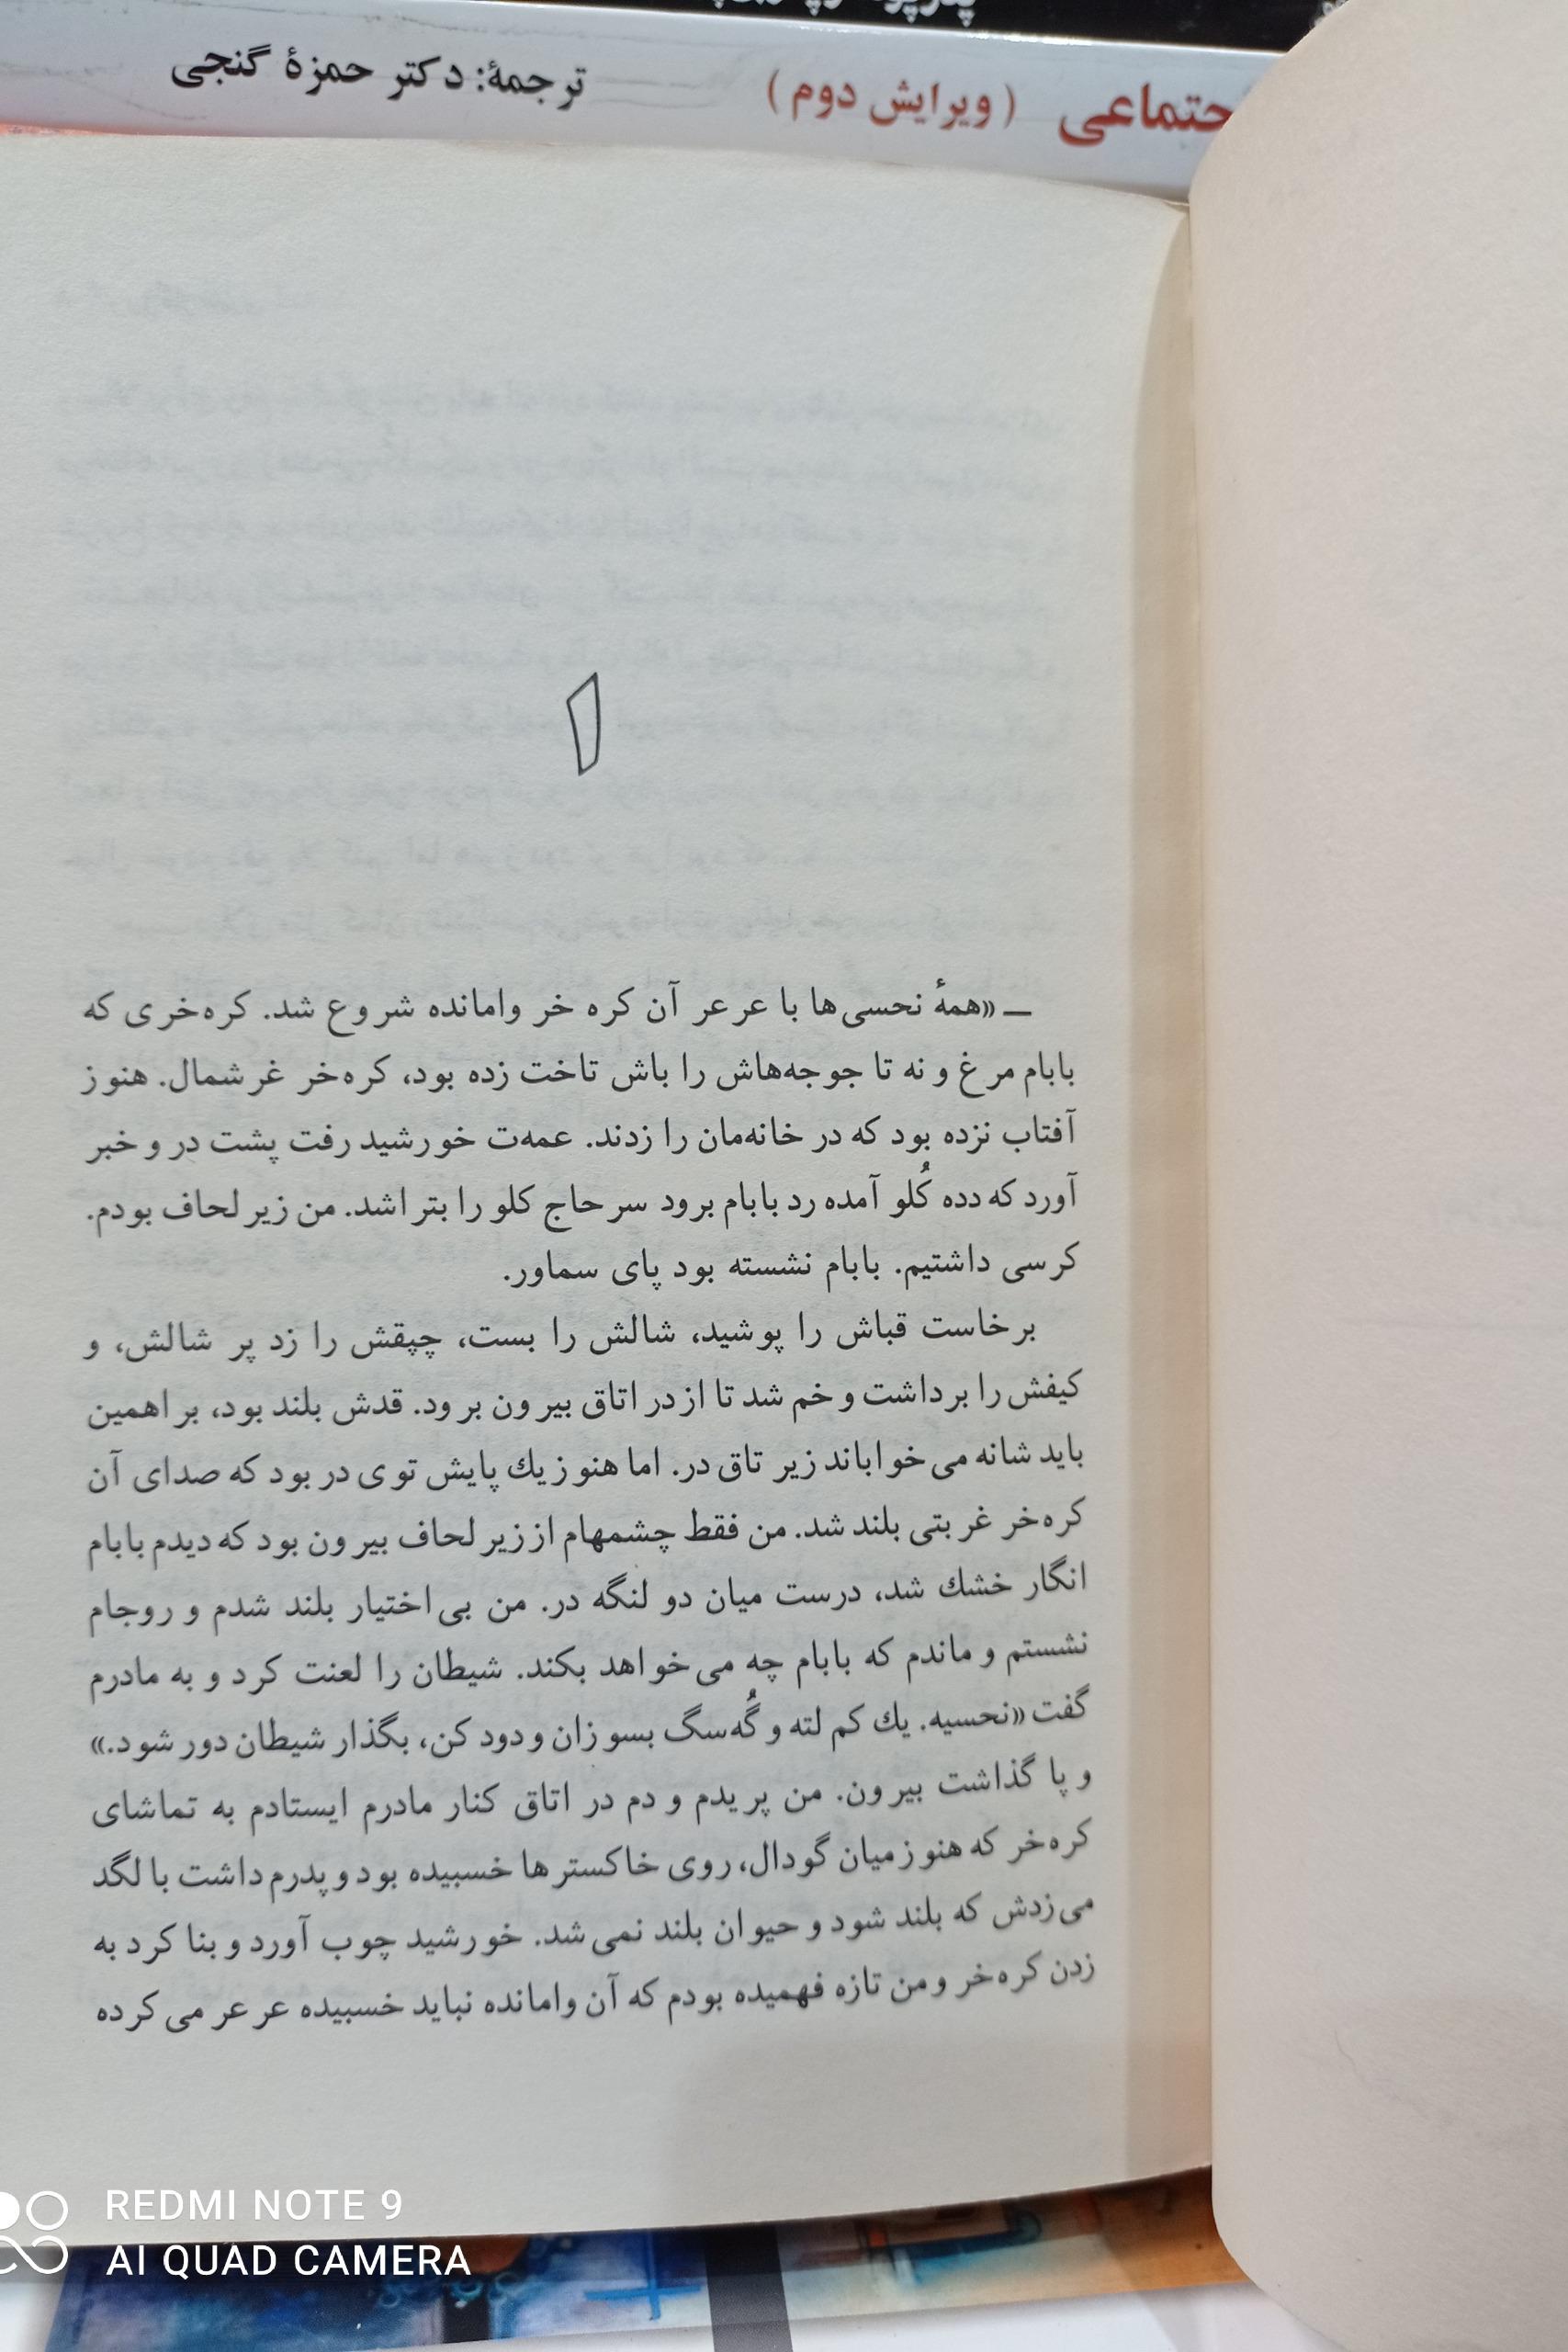 حتماعی (ویرایش دوم) ترجمهٔ: دکتر حمزهٔ گنجی
۱
ــ «همهٔ نحسی‌ها با عرعر آن کره خر وامانده شروع شد. کره‌خری که
بابام مرغ و نه تا جوجه‌هاش را باش تاخت زده بود، کره‌خر غرشمال. هنوز
آفتاب نزده بود که در خانه‌مان را زدند. عمه‌ت خورشید رفت پشت در و خبر
آورد که دده کُلو آمده رد بابام برود سر حاج کلو را بتراشد. من زیر لحاف بودم.
کرسی داشتیم. بابام نشسته بود پای سماور.
برخاست قباش را پوشید، شالش را بست، چپقش را زد پر شالش، و
کیفش را برداشت و خم شد تا از در اتاق بیرون برود. قدش بلند بود، براهمین
باید شانه می‌خواباند زیر تاق در. اما هنوز یك پایش توی در بود که صدای آن
کره‌خر غربتی بلند شد. من فقط چشمهام از زیر لحاف بیرون بود که دیدم بابام
انگار خشك شد، درست میان دو لنگه در. من بی‌اختیار بلند شدم و روجام
نشستم و ماندم که بابام چه می‌خواهد بکند. شیطان را لعنت کرد و به مادرم
گفت «نحسیه. یك کم لته و گُه‌سگ بسوزان و دود کن، بگذار شیطان دور شود.»
و پا گذاشت بیرون. من پریدم و دم در اتاق کنار مادرم ایستادم به تماشای
کره‌خر که هنوز میان گودال، روی خاکسترها خسبیده بود و پدرم داشت با لگد
می‌زدش که بلند شود و حیوان بلند نمی‌شد. خورشید چوب آورد و بنا کرد به
زدن کره‌خر و من تازه فهمیده بودم که آن وامانده نباید خسبیده عرعر می‌کرده
REDMI NOTE 9
AI QUAD CAMERA